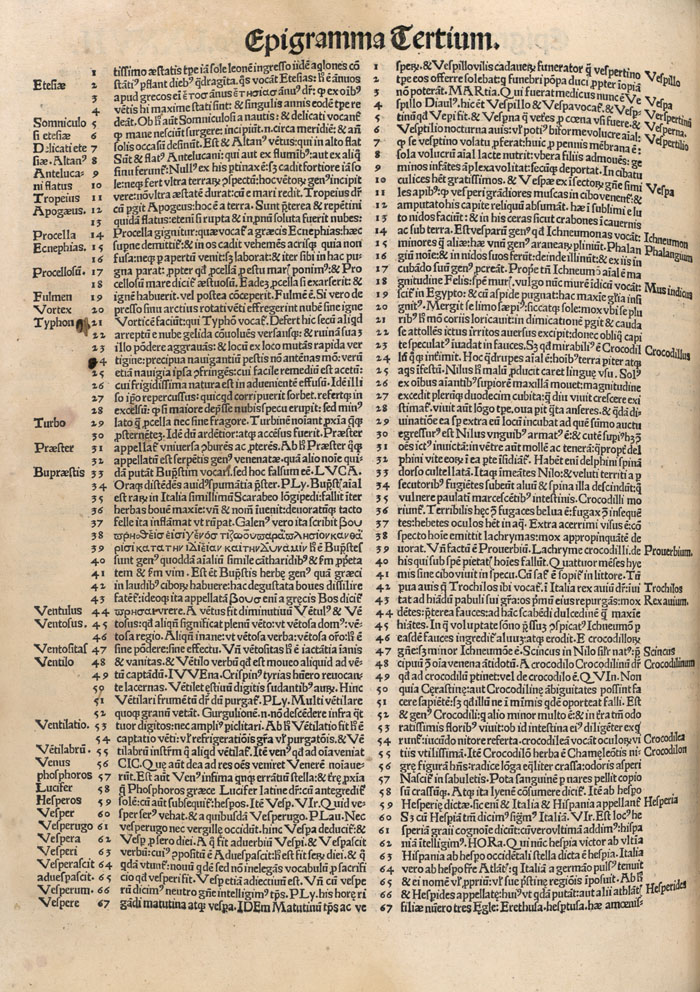 Epigramma Tertium.
1 tissimo æstatis tpe iā sole leonē ingresso iidē aglones cō
Etesiæ 2 statiꝰ flant dieb⁹ q̄dragīta. qs vocāt Etesias:
3 apud grecos
4 vētis hi maxime stati sint: & singulis annis eodē tpe re
Somniculo 5 deāt. Ob hāc aūt Somniculosi a nautis: & delicati vocant̄
si etesiæ 6 q mane nesciūt surgere: incipiūt.n.circa meridiē: & añ
Delicati ete 7 solis occasū desinūt. Est & Altan⁹ vētus: qui in alto flat
siæ. Altan⁹ 8 Sūt & flat⁹ Antelucani: qui aut ex flumib⁹: aut ex aliq
Anteluca⁹ 9 sinu ferunt̄. Null⁹ ex his
ni flatus 10 le: neq fert vltra terrā:
Tropeius 11 vere: nō vltra æstatē durāt: cū e mari redit. Tropeius dr̄
Apogæus. 12 cū pgit Apogus: hoc ē a terra. Sunt pterea & repētini
13 quidā flatus: etenī si rupta & inpnū soluta fuerit nubes:
Procella 14 Procella gignitur: quæ vocat̄ a græcis Ecnephias: hæc
Ecnephias. 15 supne demittit̄: & in os cadit vehemēs acrisq quia non
16 fusa: neq p apertū venit: sȝ laborat: & iter sibi in hac pu
Procellosū. 17 gna parat: ppter qd pcella pestu mar ponim̄⁹: & Pro
18 cellosū mare dicit̄ æstuosū. Eadē pcella si exarserit: &
Fulmen 19 ignē habuerit. vel postea cōceperit. Fulmē ē. Si vero de
Vortex 20 presso sinu arctius rotati vēti effregerint nubē sine igne
Typhon 21 Vorticē faciūt: qui Typhō vocat̄. Defert hic secū aliqd
22 arreptū e nube gelida cōuolués versansq: & ruinā suā
23 illo pōdere aggrauās: & locū ex loco mutās rapida ver
24 tigine: precipua nauigantiū pestis nō antēnas mō: verū
25 etiā nauigia ipsa pfringés: cui facile remediū est acetū:
26 cui frigidissima natura est in adueniente effusū. Idē illi
27 so ipo repercussus: quicqd corripuerit sorbet. refertq in
28 excelsū: q si maiore depsse nubis specu erupit: sed min⁹
Turbo 29 lato q pcella nec sine fragore. Turbinē noiant pxīa qq
30 psternétes. Idē dū ardētior: atq accēsus furit. Præster
Præster 31 appellat̄ vniuersa cōburés ac pterēs.
32 appellatū est serpétis gen⁹ venenatæ. quā alio noie qui
Bupræstis 33 dā putāt Bupstim vocari. sed hoc falsum eē. LVCA.
34 Oraq distēdés auid⁹ spumatia pster. PLy. Bupst⁹ aīal
35 est raȝ in Italia simillimū Scarabeo lōgipedi: fallit iter
36 herbas bouē maxie: vn̄ & nom̄ iuenit: deuoratūq tacto
37 felle ita inflāmat vt rūpat. Galen⁹ vero ita scribit βου
38
39
40 sunt gen⁹ quoddā aīaliū simile cātharidib⁹ & fm ppeta
41 tem & fm vim. Est & Bupstis herbę gen⁹ quā græci
42 in laudib⁹ ciboȝ habuere: hac degustata boues dissilire
43 fatent̄: ideoq ita appellatā βους eni a grecis Bos dicit̄
Ventulus 44 A vētus fit diminutiuū Vētul⁹ & Vē
Ventosus. 45 tosus: qd aliqn̄ significat plenū vēto: vt vētosa dom⁹: vē
46 tosa regio. Aliqn̄ inane: vt vētosa verba: vētosa oro: h̄ ē
Ventositas 47 sine pōdere: sine effectu. Vn̄ vētositas h̄ ē iactātia īanis
Ventilo 48 & vanitas. & Vētilo verbū qd est moueo aliquid ad vē
49 tū captādū. IVVEna. Crispin⁹ tyrias hūero reuocan
50 te lacernas. Vētilet ęstiuū digitis sudantib⁹ auȝ. Hinc
51 Vētilari frumētū dr̄ dū purgat̄. PLy. Multi vētilare
52 quoq granū vetāt. Gurgulionē.n.nō descēdere infra q̄t
Ventilatio. 53 tuor digitos: nec ampli⁹ piditari. Ab h̄ Vētilatio fit h̄ ē
54 captatio vēti: vl̄ refrigeratiōis gr̄a vl̄ purgatōis. & Vē
Vētilabrū. 55 tilabrū instr̄m q aliqd vētilat̄. Itē ven⁹ qd ad oīa veniat
Venus 56 CIC. Que aūt dea ad res oēs veniret Venerē noīaue⸗
phosphoros 57 rūt. Est aūt Ven⁹ infima qnq errātiū stella: & trę pxia
Lucifer 58 q Phosphoros græce Lucifer latine dr̄: cū antegredit̄
Hesperos 59 solē: cū aūt subsequit̄: hespos. Itē Vesp. VIr. Quid ve⸗
Vesper 60 sper ser⁹ vehat. & a quibusdā Vesperugo. PLau. Nec
Vesperugo 61 vesperugo nec vergilię occidūt. hinc Vespa deducit̄: &
Vespera 62 Vesp p sero diei. A q̄ fit aduerbiū Vespi. & Vespascit
Vesperi 63 verbū: cui⁹ ppositū ē Aduespascit: h̄ est fit serȝ diei. & q
Vesperascit 64 dā vtunt̄: nouū qdē sed nō inelegās vocabulū p sacrifi
aduespascit. 65 cio qd vesperi fit. Vespa etiā adiectiuū est. Vn̄ cū vespe
Vesperum. 66 rū dicim⁹ neutro gn̄e intelligim⁹ tps. PLy. his horę ri
Vespere 67 gādi matutina atq vespa. IDEm Matutinū tps ac ve
1 spery. & Vespillo vilis cadauerȝ funerator q vespertino
2 tpe eos offerre solebat: q funebri pōpa duci ppter iopiā Vespillo
3 nō poterāt. MARtia. Qui fuerat medicus nunc ē Ve Vespa
4 spillo Diaul⁹. hic ē vt Vespillo & Vespa vocat̄. & Vesp⸗ Vespertinū
5 tinū qd Vepi fit. & Vespna q vetés p cœna vn̄ fuere. & Vesperna.
6 Vesptilio nocturna auis: vl̄ poti⁹ biforme volucre aīal: Vespertilio
7 q se vesptino volatu pferat: huic p pennis mēbranā ē:
8 sola volucrū aīal lacte nutrit: vbera filiis admoués: ge
9 minos infātes aplexa volitat: secūq deportat. In cibatu
10 culices hēt gratissimos. & Vespæ ex isectoȝ gn̄e simi Vespa
11 les apib⁹: q vesperi grādiores muscas in cibo venent̄: &
12 amputato his capite reliquū absumūt. hæ i sublimi e lu
13 to nidos faciūt: & in his ceras sicut crabones i cauernis
14 ac sub terra. Est vesparū gen⁹ qd Ichneumonas vocāt: Ichneumon
15 minores q aliæ: hæ vnū gen⁹ araneaȝ pimūt. Phalan Phalangium
16 giū noīe: & in nidos suos ferūt: deinde illinūt: & ex iis in
17 cubādo suū gen⁹ pcreāt. Prope tn̄ Ichneumō aīal ē ma
18 gnitudine Felis: spem̄ mur. vulgo nūc murē idicū vocāt: Mus indicus
19 scif in Egypto: & cū aspide pugnat: hac maxie gl̄ia insi
20 gnis. Mergit se limo sępi⁹: siccatq sole: mox vbi se plu
21 rib⁹ h̄ mō coriis loricauit: in dimicatōnē pgit & cauda
22 se attollés ictus irritos auersus excipit: donec obliq capi
23 te speculat⁹ iuadat in fauces. Sȝ qd mirabile ē Crocodil Crocodillus
24 lū qq intimit. Hoc qdrupes aīal ē: hoib⁹ terra piter atq
25 aqs ifestū. Nilus h̄ malū pducit caret linguę vsu. Sol⁹
26 ex oibus aiantib⁹ supiorē maxillā mouet: magnitudine
27 excedit plerūq duodecim cubita: q diu viuit crescere exi
28 stimat̄. viuit aūt lōgo tpe. oua pit qta anseres. & qdā di⸗
29 uinatiōe ea sp extra eū locū incubat ad quē sūmo auctu
30 egressur⁹ est Nilus vnguib⁹ armat⁹ ē: & cutē
31 oēs ict⁹ inuicta: in vētre aūt mollē ac tenerā: qppe del
32 phini vite eoȝ i ea pte īsidiāt̄. Habēt eni delphini spinā
33 dorso cultellatā. Itaq inmeātes Nilo: & velutī territi a p
34 secutorib⁹ fugiētes subeūt aluū & spina illa descindūt: q
35 vulnere paulati marcescētib⁹ intestinis. Crocodilli mo
36 riunt̄. Terribilis hęc ȝ fugaces belua ē: fugax ȝ insequé
37 tes: hebetes oculos hēt in aq. Extra acerrimi visus ē: cō
38 specto hoīe emittit lachrymas: mox appropiquātē de
39 uorat. Vn̄ factū ē Prouerbiū. Lachryme crocodilli. de Prouerbium.
40 his qui sub spē pietat⁹ hoīes fallūt. Quattuor mēses hye
41 mis sine cibo viuit in specu. Cū sat̄ ē sopit̄ in littore. Tū
42 pua auis q Trochilos ibi vocat̄. i Italia rex auiū dr̄: iui Trochilos
43 tat ad hiādū pabuli sui gr̄a: os pmū eius repurgās: mox Rex auium.
44 détes: pterea fauces: ad hāc scabēdi dulcedinē q maxie
45 hiātes. In q voluptate sōno pssus ȝ ospicat⁹ Ichneumō p
46 easdē fauces ingredit̄ aluū: atq erodit. E crocodilloȝ
47 gn̄e: sȝ minor Ichneumōe ē. Scincus in Nilo silr̄ nat⁹: p Scincus
48 cipuū ȝ oia venena ātidotū. A crocodilo Crocodilinū dr̄ Crocodilinum
49 qd ad crocodilū ptinet: vel de crocodilo ē. QVIn. Non
50 quia Cęrastinę: aut Crocodilinę abiguitates possint fa
51 cere sapiétē: sȝ qd illū ne i mimis qdē oporteat falli. Est
52 & gen⁹ Crocodili: q alio minor multo ē: & in tr̄a tm̄ odo
53 ratissimis florib⁹ viuit: ob id intestina ei⁹ diligēter exqrū
54 runt̄: iucūdo nitore referta. crocodileā vocāt oculoȝ vi Crocodilea
55 tiis vtilissimā. Itē Crocodilō herba ē Chameleōtis ni⸗ Crocodilon
56 grę figurā hn̄s: radice lōga eqliter crassa: odoris asperi
57 Nascit̄ in sabuletis. Pota sanguinē p nares pellit copio
58 sū crassūq. Atq ita lyenē cōsumere dicit̄. Itē ab hespo
59 Hesperię dictæ. sic eni & Italia & Hispania appellant̄ Hesperia
60 Sȝ cū Hespiā tm̄ dicim⁹ signim⁹ Italiā. VIr. Est loc⁹ he
61 speriā graii cognoīe dicūt: cū vero vltimā addim⁹: hispa
62 niā ītelligim⁹. HORa. Qui nūc hespia victor ab vltīa
63 Hispania ab hespo occidētali stella dicta ē hespia. Italia
64 vero ab hespo fre Atlāt⁹: q Italiā a germāo puls⁹ tenuit
65 & ei nomē vl̄ pprium: vl̄ sue pstinę regiōis iposuit. Ab h̄
66 & Hespides appellatę: hui⁹ vt qdā putāt: aut alii athlāt⁹ Hesperides
67 filiæ nūero tres Ęgle: Erethusa. hesptusa. hæ amœnis⸗